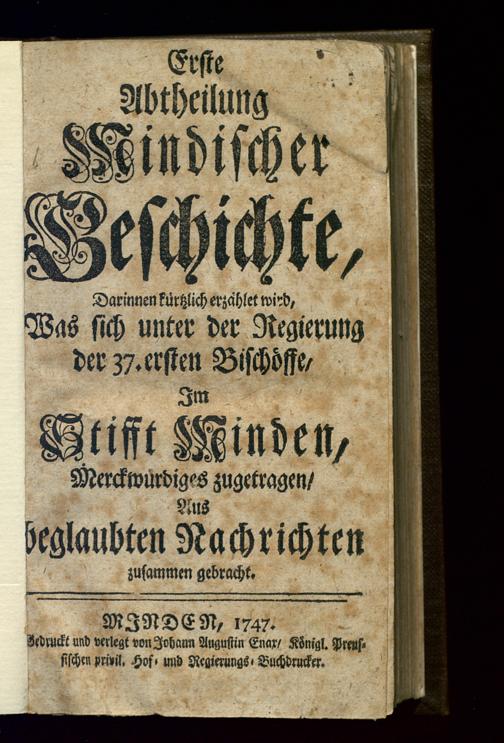 Erste
Abtheilung
Mindischer
Geschichte,
Darinnen kürtzlich erzählet wird,
Was sich unter der Regierung
der 37. ersten Bischöffe/
Im
Stifft Minden,
Merckwürdiges zugetragen/
Aus
beglaubten Nachrichten
zusammen gebracht.
MINDEN, 1747.
Gedruckt und verlegt von Johann Augustin Enax/ Königl. Preus-
sischen privil. Hof- und Regierungs-Buchdrucker.